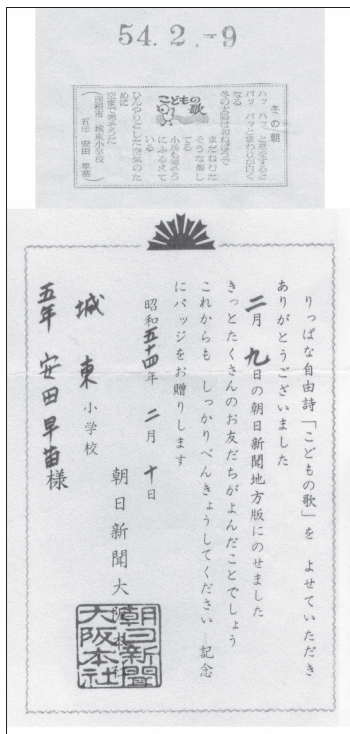 54. 2. -9
こどもの歌
冬の朝
ハッ ハッ と息をすると
パッ パッと変わり白く
なる
冬の太陽はおねぼうで
まだねむた
そうな顔し
てる
小鳥も寒そう
にふるえて
いる
ひんやりとした空気のた
めに
空まで寒そうだ
城東小学校
五年 安田 早苗
りっぱな自由詩「こどもの歌」を よせていただき
ありがとうございました
二月 九日の朝日新聞地方版にのせました
きっとたくさんのお友だちがよんだことでしょう
これからも しっかりべんきょうしてください 記念
にバッジをお贈りします
昭和五十四年 二月 十日
城東小学校
五年 安田早苗様
朝日新聞大阪本社
朝日新聞
大阪本社